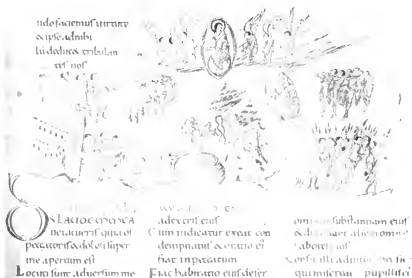 ndo faciemus uirtute
& ipse adnihi
lu deduc& tribulan
tes nos
ne tacueris quia os
peccatoris & dolosi super
me apertum est
Locuti sunt aduersum me
adextris eius
Cum iudicatur exeat con
dempnatus & oratio ei
fiat inpeccatum
Fiat habitatio eius deser
substantiam eius
alieni
labores eius
illi adiutor
qui misereatur pupillis ei